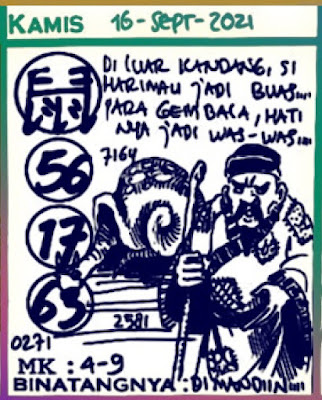 KAMIS 16-SEPT-2021
DI LUAR KANDANG, SI
HARIMAU JADI BUAS....
PARA GEMBALA, HATI
NYA JADI WAS-WAS....
7164
56
17
63
2581
0271
MK : 4-9
BINATANGNYA : DIMANDIIN....